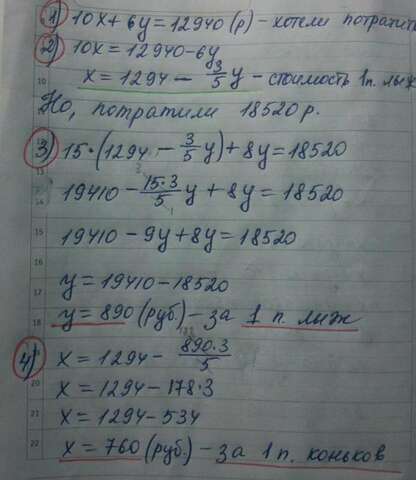 1) 10x + 6y = 12940 (р) - хотели потратить
2) 10x = 12940 - 6y
x = 1294 - 3/5 y - стоимость 1п. лыж
Но, потратили 18520 р.
3) 15·(1294 - 3/5 y) + 8y = 18520
19410 - 15·3/5 y + 8y = 18520
19410 - 9y + 8y = 18520
y = 19410 - 18520
y = 890 (руб.) - за 1 п. лыж
4) x = 1294 - 890·3/5
x = 1294 - 178·3
x = 1294 - 534
x = 760 (руб.) - за 1 п. коньков